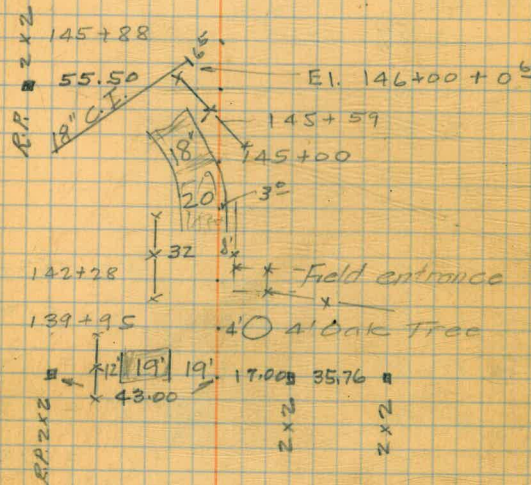 145+88
2x2
R.P.
55.50
18" C.I.
El. 146+00 + 0
145+59
18'
145+00
20
3º
32
8'
142+28
Field entrance
139+95
4' 4' Oak Tree
12' 19' 19' 17.00 35.76
43.00
R.P. 2x2
2x2
2x2